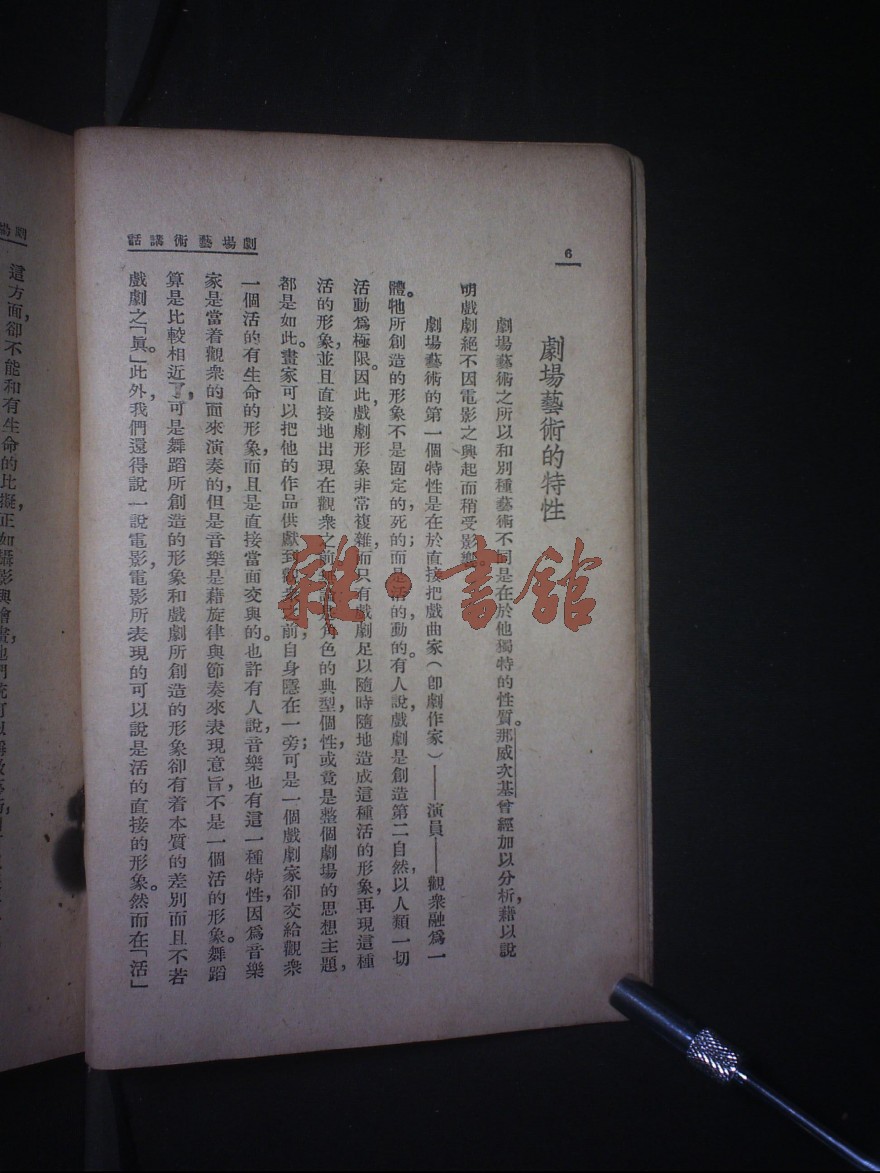 6
劇場藝術講話
劇場藝術的特性
劇場藝術之所以和別種藝術不同是在於他獨特的性質。那威次基曾經加以分析，藉以說
明戲劇絕不因電影之興起而稍受影響
劇場藝術的第一個特性是在於直接把戲曲家（卽劇作家）——演員——觀衆融爲一
體。牠所創造的形象不是固定的，死的；而是活的，動的。有人說，戲劇是創造第二自然，以人類一切
活動爲極限。因此，戲劇形象非常複雜，而只有戲劇足以隨時隨地造成這種活的形象，再現這種
活的形象，並且直接地出現在觀衆之前，無論是角色的典型，個性，或竟是整個劇場的思想主題，
都是如此。畫家可以把他的作品供獻到觀衆之前，自身隱在一旁；可是一個戲劇家卻交給觀衆
一個活的有生命的形象，而且是直接當面交與的。也許有人說，音樂也有這一種特性，因爲音樂
家是當着觀衆的面來演奏的，但是音樂是藉旋律與節奏來表現意旨，不是一個活的形象。舞蹈
算是比較相近了，可是舞蹈所創造的形象和戲劇所創造的形象卻有着本質的差別，而且不若
戲劇之「眞」。此外，我們還得說一說電影，電影所表現的可以說是活的直接的形象。然而在「活」
劇場
這方面，卻不能和有生命的比擬，正如攝影與繪畫，他們
杂·書館